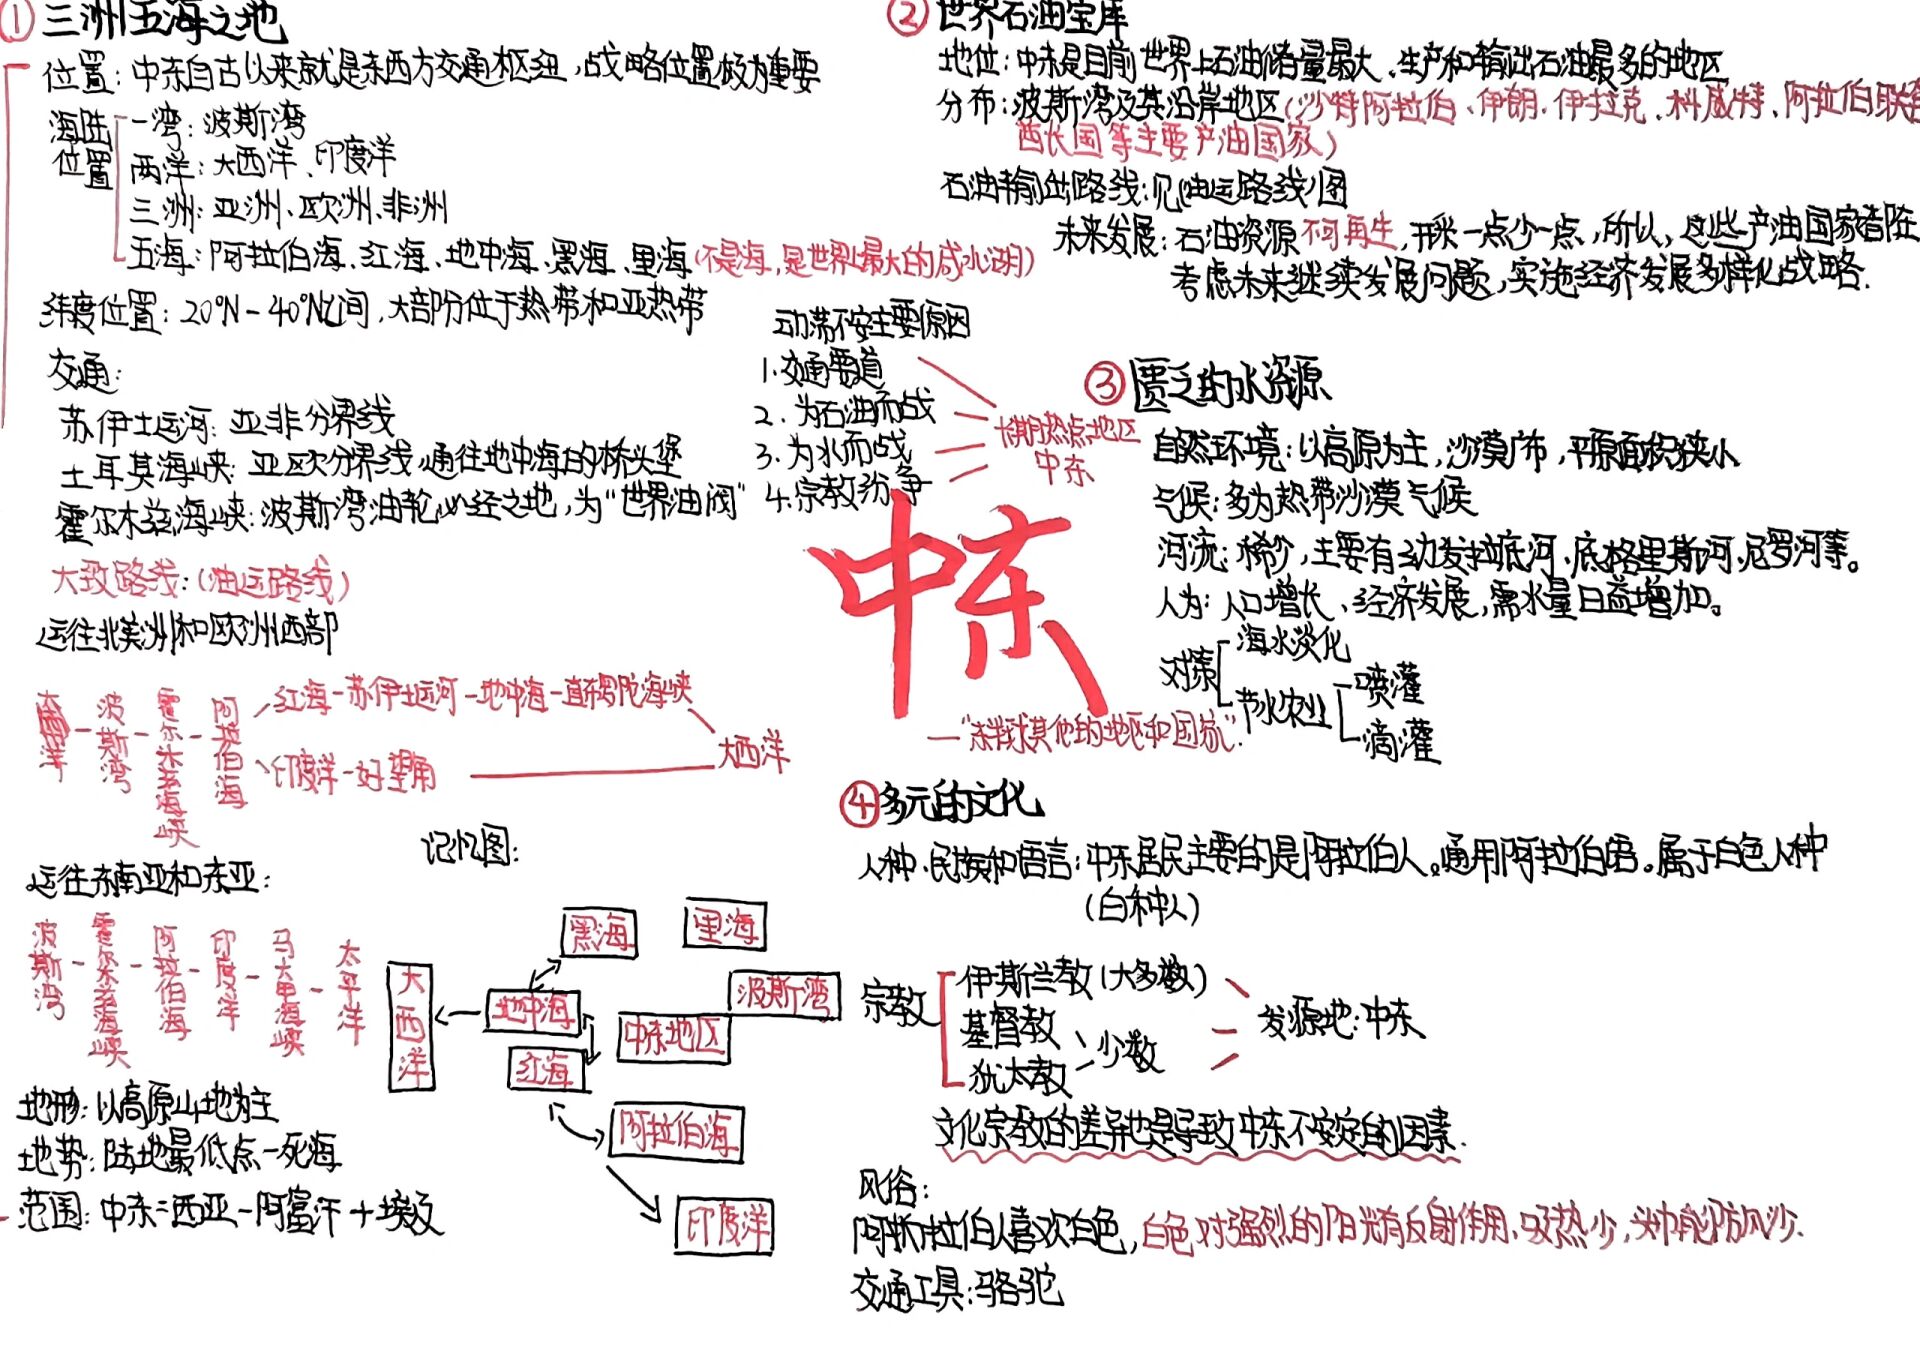 ① 三洲五海之地
位置：中东自古以来就是东西方交通枢纽，战略位置极为重要
海陆位置
一湾：波斯湾
两洋：大西洋、印度洋
三洲：亚洲、欧洲、非洲
五海：阿拉伯海、红海、地中海、黑海、里海(不是海，是世界上最大的咸水湖)
纬度位置：20°N-40°N之间，大部分位于热带和亚热带
交通：
苏伊士运河：亚非分界线
土耳其海峡：亚欧分界线，通往地中海的桥头堡
霍尔木兹海峡：波斯湾油轮必经之地，为“世界油阀”
大致路线：(油运路线)
运往北美洲和欧洲西部
波斯湾-霍尔木兹海峡-阿拉伯海
红海-苏伊士运河-地中海-直布罗陀海峡
印度洋-好望角
大西洋
运往东南亚和东亚：
波斯湾-霍尔木兹海峡-阿拉伯海-印度洋-马六甲海峡-太平洋
地形：以高原山地为主
地势：陆地最低点-死海
范围：中东=西亚-阿富汗+埃及
记忆图：
黑海
里海
大西洋
地中海
波斯湾
中东地区
红海
阿拉伯海
印度洋
动荡不安主要原因
1.交通要道
2.为石油而战
3.为水而战
4.宗教纷争
长期热点地区
中东
中东
—“东半球其他的地区和国家”
② 世界石油宝库
地位：中东是目前世界上石油储量最大、生产和输出石油最多的地区
分布：波斯湾及其沿岸地区(沙特阿拉伯、伊朗、伊拉克、科威特、阿拉伯联合
酋长国等主要产油国家)
石油输出路线：见(油运路线)图
未来发展：石油资源不可再生，开采一点少一点，所以，这些产油国家皆在
考虑未来继续发展问题，实施经济发展多样化战略.
③ 匮乏的水资源
自然环境：以高原为主，沙漠广布，平原面积狭小
气候：多为热带沙漠气候
河流：稀少，主要有幼发拉底河、底格里斯河、尼罗河等。
人为：人口增长、经济发展，需水量日益增加。
对策
海水淡化
节水农业
喷灌
滴灌
④ 多元的文化
人种、民族和语言：中东居民主要的是阿拉伯人。通用阿拉伯语。属于白色人种
(白种人)
宗教
伊斯兰教(大多数)
基督教
犹太教
少数
发源地：中东
文化宗教的差异也是导致中东不安定的因素.
风俗：
阿拉伯人喜欢白色，白色对强烈的阳光有反射作用，吸热少，头巾能防风沙.
交通工具：骆驼